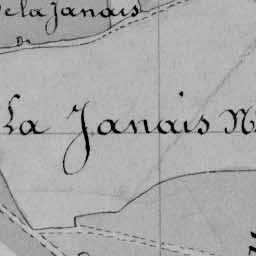 de la Janais
La Janais N